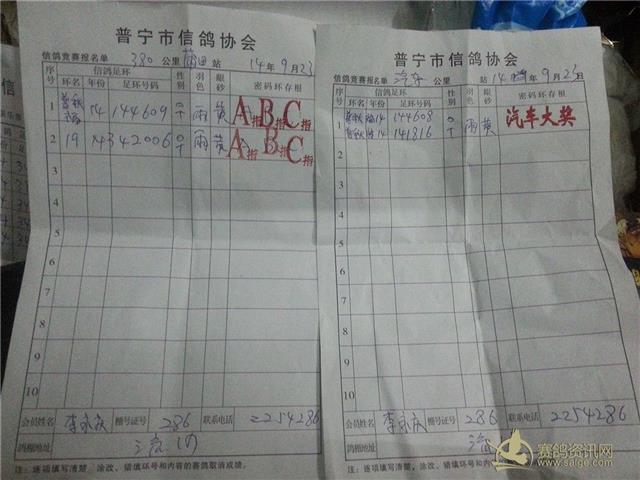 普宁市信鸽协会
信鸽竞赛报名单 380 公里 莆田 站 14年9月23
序号 信鸽足环 性别 羽色 眼砂 密码环存根
环名 年份 足环号码
1 14 144609 ♀ 雨 黄 A指 B指 C指
2 19 14 342006 ♀ 雨 黄 A指 B指 C指
3
4
5
6
7
8
9
10
会员姓名 李永庆 棚号证号 286 联系电话 2254286
鸽棚地址
注:逐项填写清楚,涂改、错填环号和内容的赛鸽取消成绩。
普宁市信鸽协会
信鸽竞赛报名单 汽车 公里 站 14年9月23
序号 信鸽足环 性别 羽色 眼砂 密码环存根
环名 年份 足环号码
1 14 144608 ♀ 雨 黄 汽车大奖
14 141816
2
3
4
5
6
7
8
9
10
会员姓名 李永庆 棚号证号 286 联系电话 2254286
鸽棚地址
注:逐项填写清楚,涂改、错填环号和内容的赛鸽取消成绩。
赛鸽资讯网
www.saige.com